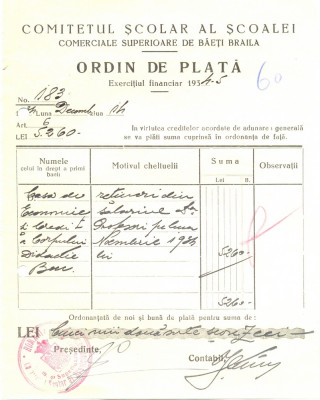 COMITETUL ȘCOLAR AL ȘCOALEI
COMERCIALE SUPERIOARE DE BĂEȚI BRAILA
ORDIN DE PLATĂ
60
Exercițiul financiar 1934-5
No. 183
Luna Decemb ziua 14
Art. 6
LEI 5260.-
In virtutea creditelor acordate de adunarea generală
se va plăti suma cuprinsă în ordonanța de față.
Numele
celui în drept a primi
Banii
Motivul cheltuelii
Suma
Lei B.
Observații
Casa de
Economie
si Credit
a Corpului
Didactic
Buc.
rețineri din
salariul
Profesori pe luna
Noembrie 1934
lei
5260.-
5260.-
Ordonanțată de noi și bună de plată pentru suma de:
LEI Cinci mii două sute șeizeci
Președinte,
Contabil,